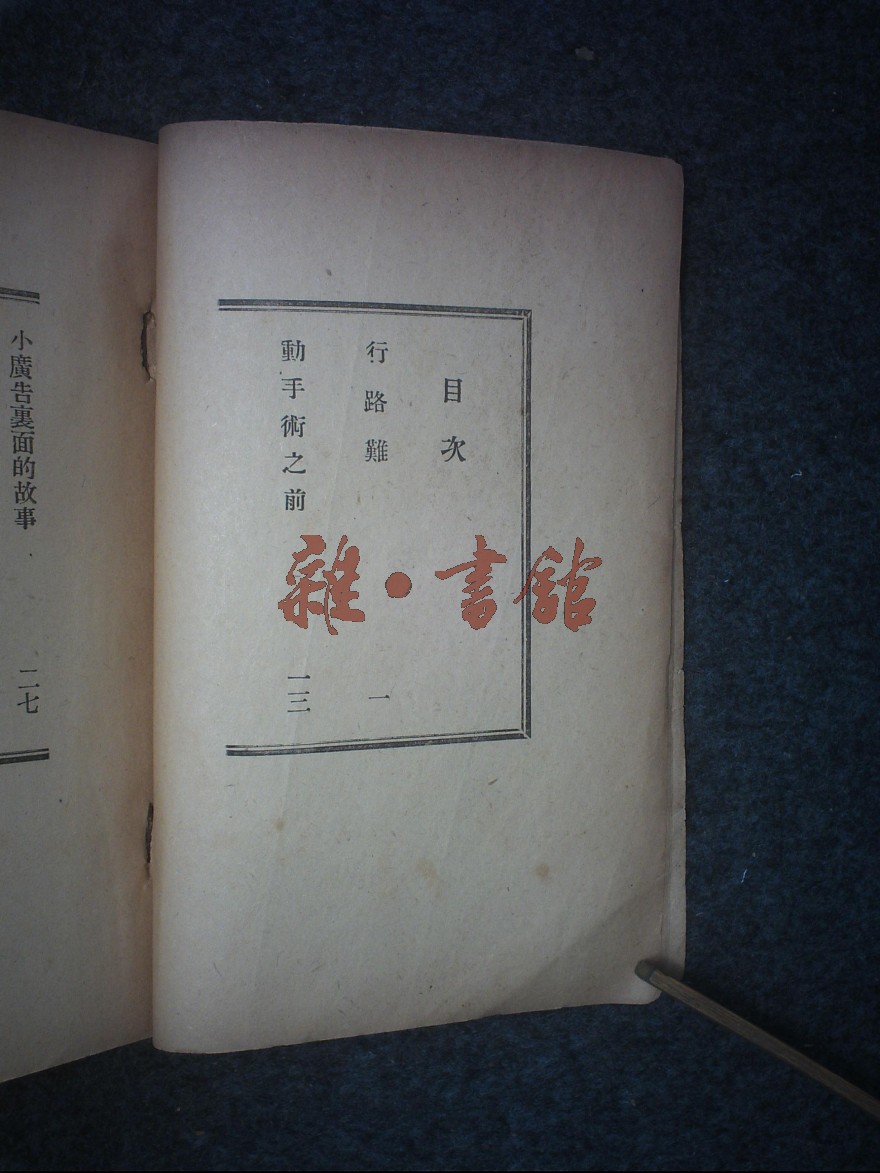 目次
行路難 一
動手術之前 一三
小廣告裏面的故事 二七
雜·書館